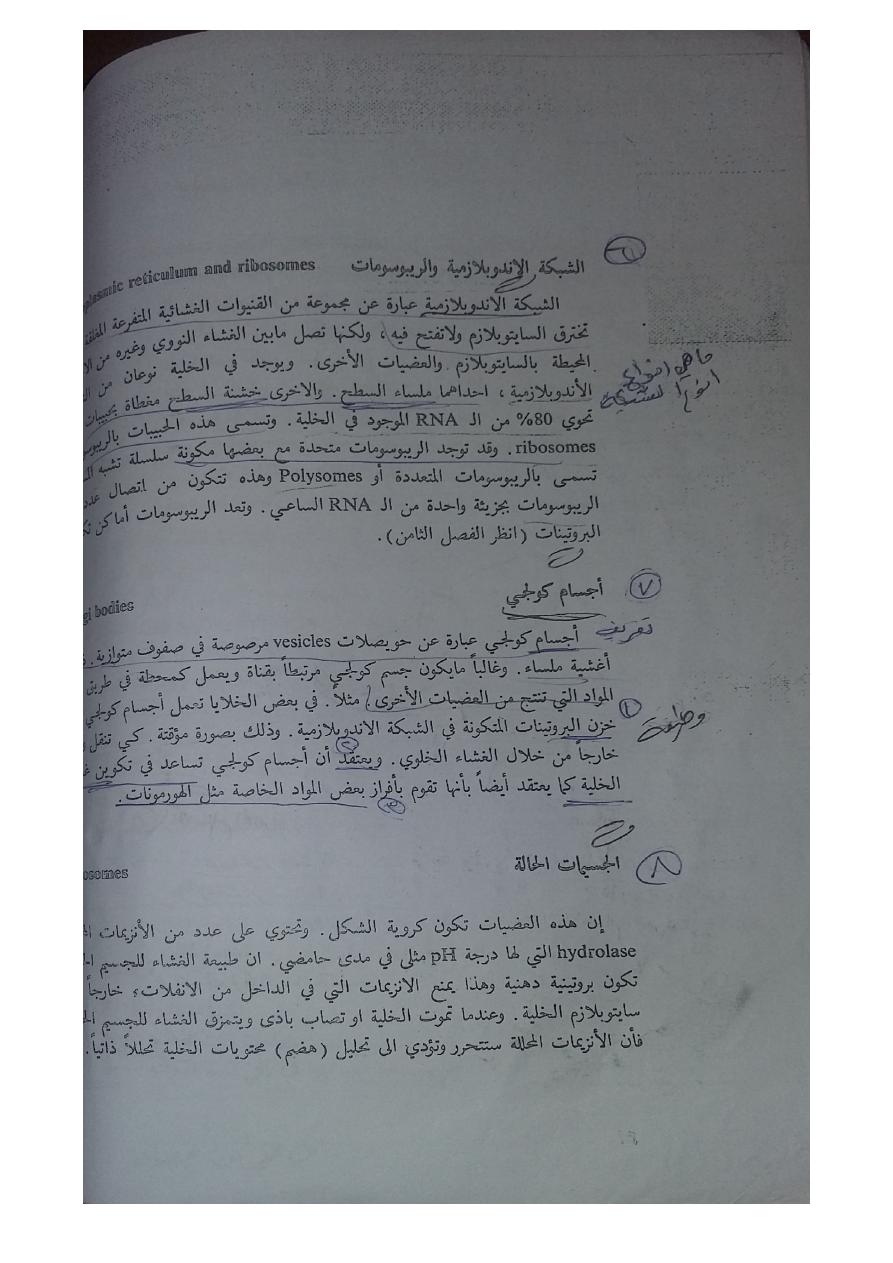 ٦
الشبكة الاندوبلازمية والريبوسومات plasmic reticulum and ribosomes
الشبكة الاندوبلازمية عبارة عن مجموعة من القنيوات الغشائية المتفرعة المغلقة
تخترق السايتوبلازم ولاتفتح فيه، ولكنها تصل مابين الغشاء النووي وغيره من
المحيطة بالسايتوبلازم والعضيات الأخرى. ويوجد في الخلية نوعان من
الأندوبلازمية، احداهما ملساء السطح. والاخرى خشنة السطح مغطاة بحبيبات
ماهي انواع
الشبكة
تحوي 80% من الـ RNA الموجود في الخلية. وتسمى هذه الحبيبات
ribosomes. وقد توجد الريبوسومات متحدة مع بعضها مكونة سلسلة تشبه
تسمى بالريبوسومات المتعددة أو Polysomes وهذه تتكون من اتصال عدد
الريبوسومات بجزيئة واحدة من الـ RNA الساعي. وتعد الريبوسومات أماكن
البروتينات (انظر الفصل الثامن).
٧
أجسام كولجي gi bodies
تعريف
أجسام كولجي عبارة عن حويصلات vesicles مرصوصة في صفوف متوازية.
أغشية ملساء. وغالباً مايكون جسم كولجي مرتبطاً بقناة ويعمل كمحطة في طريق
المواد التي تنتج من العضيات الأخرى. مثلاً. في بعض الخلايا تعمل أجسام كولجي
وظيفة
١
خزن البروتينات المتكونة في الشبكة الاندوبلازمية. وذلك بصورة مؤقتة. كي تنقل
خارجاً من خلال الغشاء الخلوي. ويعتقد أن أجسام كولجي تساعد في تكوين
٢
الخلية كما يعتقد أيضاً بأنها تقوم بأفراز بعض المواد الخاصة مثل الهورمونات.
٣
٨
الجسيمات الحالة osomes
إن هذه العضيات تكون كروية الشكل. وتحتوي على عدد من الأنزيمات
hydrolase التي لها درجة pH مثلى في مدى حامضي. ان طبيعة الغشاء للجسيم
تكون بروتينية دهنية وهذا يمنع الانزيمات التي في الداخل من الانفلات، خارجاً
سايتوبلازم الخلية. وعندما تموت الخلية او تصاب باذى ويتمزق الغشاء للجسيم
فأن الأنزيمات المحللة ستتحرر وتؤدي الى تحليل (هضم) محتويات الخلية تحللاً ذاتياً.